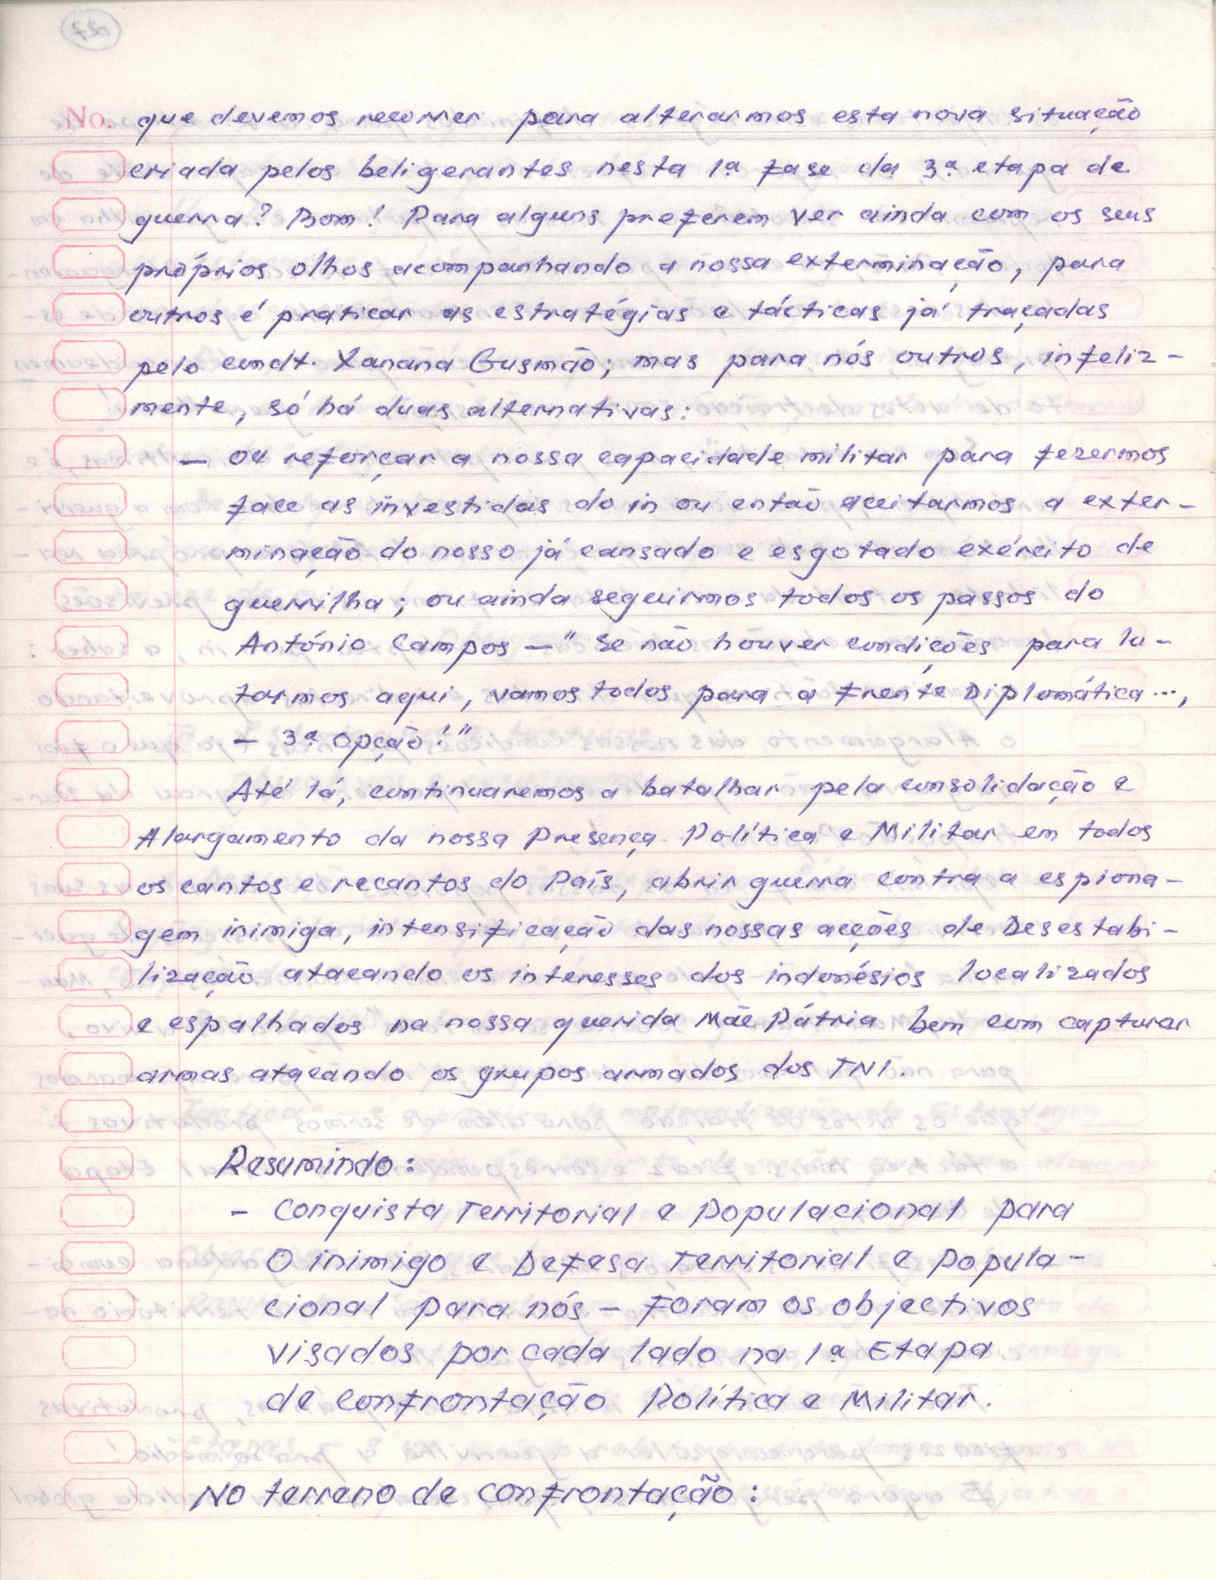 No. que devemos recorrer para alterarmos esta nova situação
criada pelos beligerantes nesta 1ª fase da 3ª etapa de
guerra? Bom! Para alguns preferem ver ainda com os seus
próprios olhos acompanhando a nossa exterminação, para
outros é praticar as estratégias e tácticas já traçadas
pelo comdt. Xanana Gusmão; mas para nós outros, infeliz-
mente, só há duas alternativas:
— ou reforçar a nossa capacidade militar para fezermos
face as investidas do in ou então aceitarmos a exter-
minação do nosso já cansado e esgotado exército de
guerrilha; ou ainda seguirmos todos os passos do
António Campos — " Se não houver condições para lu-
tarmos aqui, vamos todos para a Frente Diplomática ...,
— 3ª opção!"
Até lá, continuaremos a batalhar pela consolidação e
Alargamento da nossa Presença Política e Militar em todos
os cantos e recantos do País, abrir guerra contra a espiona-
gem inimiga, intensificação das nossas acções de Desestabi-
lização atacando os interesses dos indonésios localizados
e espalhados na nossa querida Mãe Pátria bem com capturar
armas atacando os grupos armados dos TNI.
Resumindo:
- Conquista Territorial e Populacional para
O inimigo e Defesa Territorial e Popula-
cional para nós — Foram os objectivos
visados por cada lado na 1ª Etapa
de confrontação Política e Militar.
No terreno de confrontação: